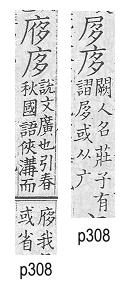 闕人名莊子有
謂或从广
p308
㢋
說文廣也引春
秋國語俠溝而
我
或省
p308